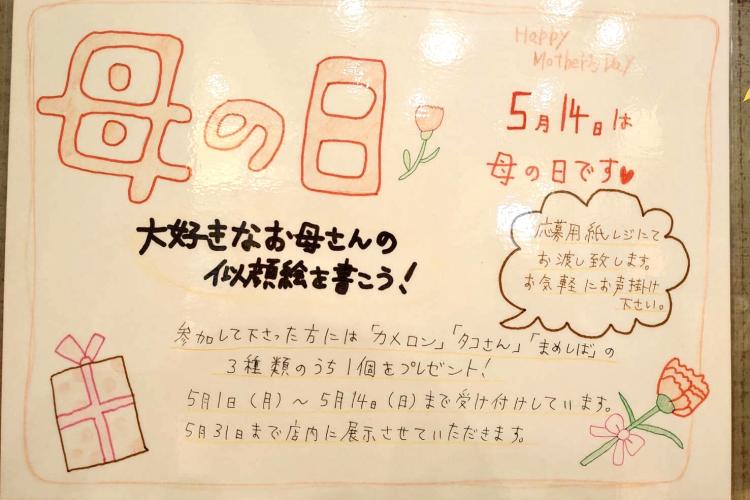 母の日
Happy
Mother's Day
5月14日は
母の日です♥
大好きなお母さんの
似顔絵を書こう!
応募用紙レジにて
お渡し致します。
お気軽にお声掛け
下さい。
参加して下さった方には「カメロン」「タコさん」「まめしば」の
3種類のうち1個をプレゼント!
5月1日(月)～5月14日(日)まで受け付けしています。
5月31日まで店内に展示させていただきます。